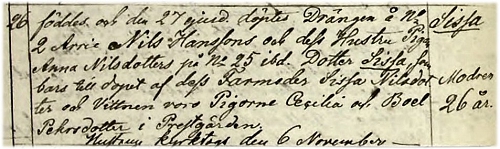 26 föddes och den 27 ejusd. döptes Drängen å No Sissa
2 Arrie Nils Hanssons och dess Hustru
Anna Nilsdotters på No 25 ibd. Dotter Sissa,
bars till dopet af dess Farmoder Sissa Nilsdot Modren
ter och Vittnen voro Pigorne Cecilia och Boel 26 år.
Pehrsdotter i Prestgården.
Hustrun kyrktogs den 6 November